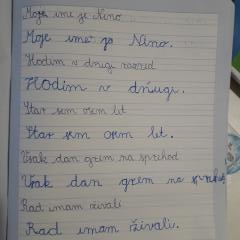 Moje ime je Nino
Moje ime je Nino.
Hodim v drugi razred
Hodim v drugi.
Star sem osem let
Star sem osem let.
Vsak dan grem na sprehod
Vsak dan grem na sprehod
Rad imam živali
Rad imam živali.